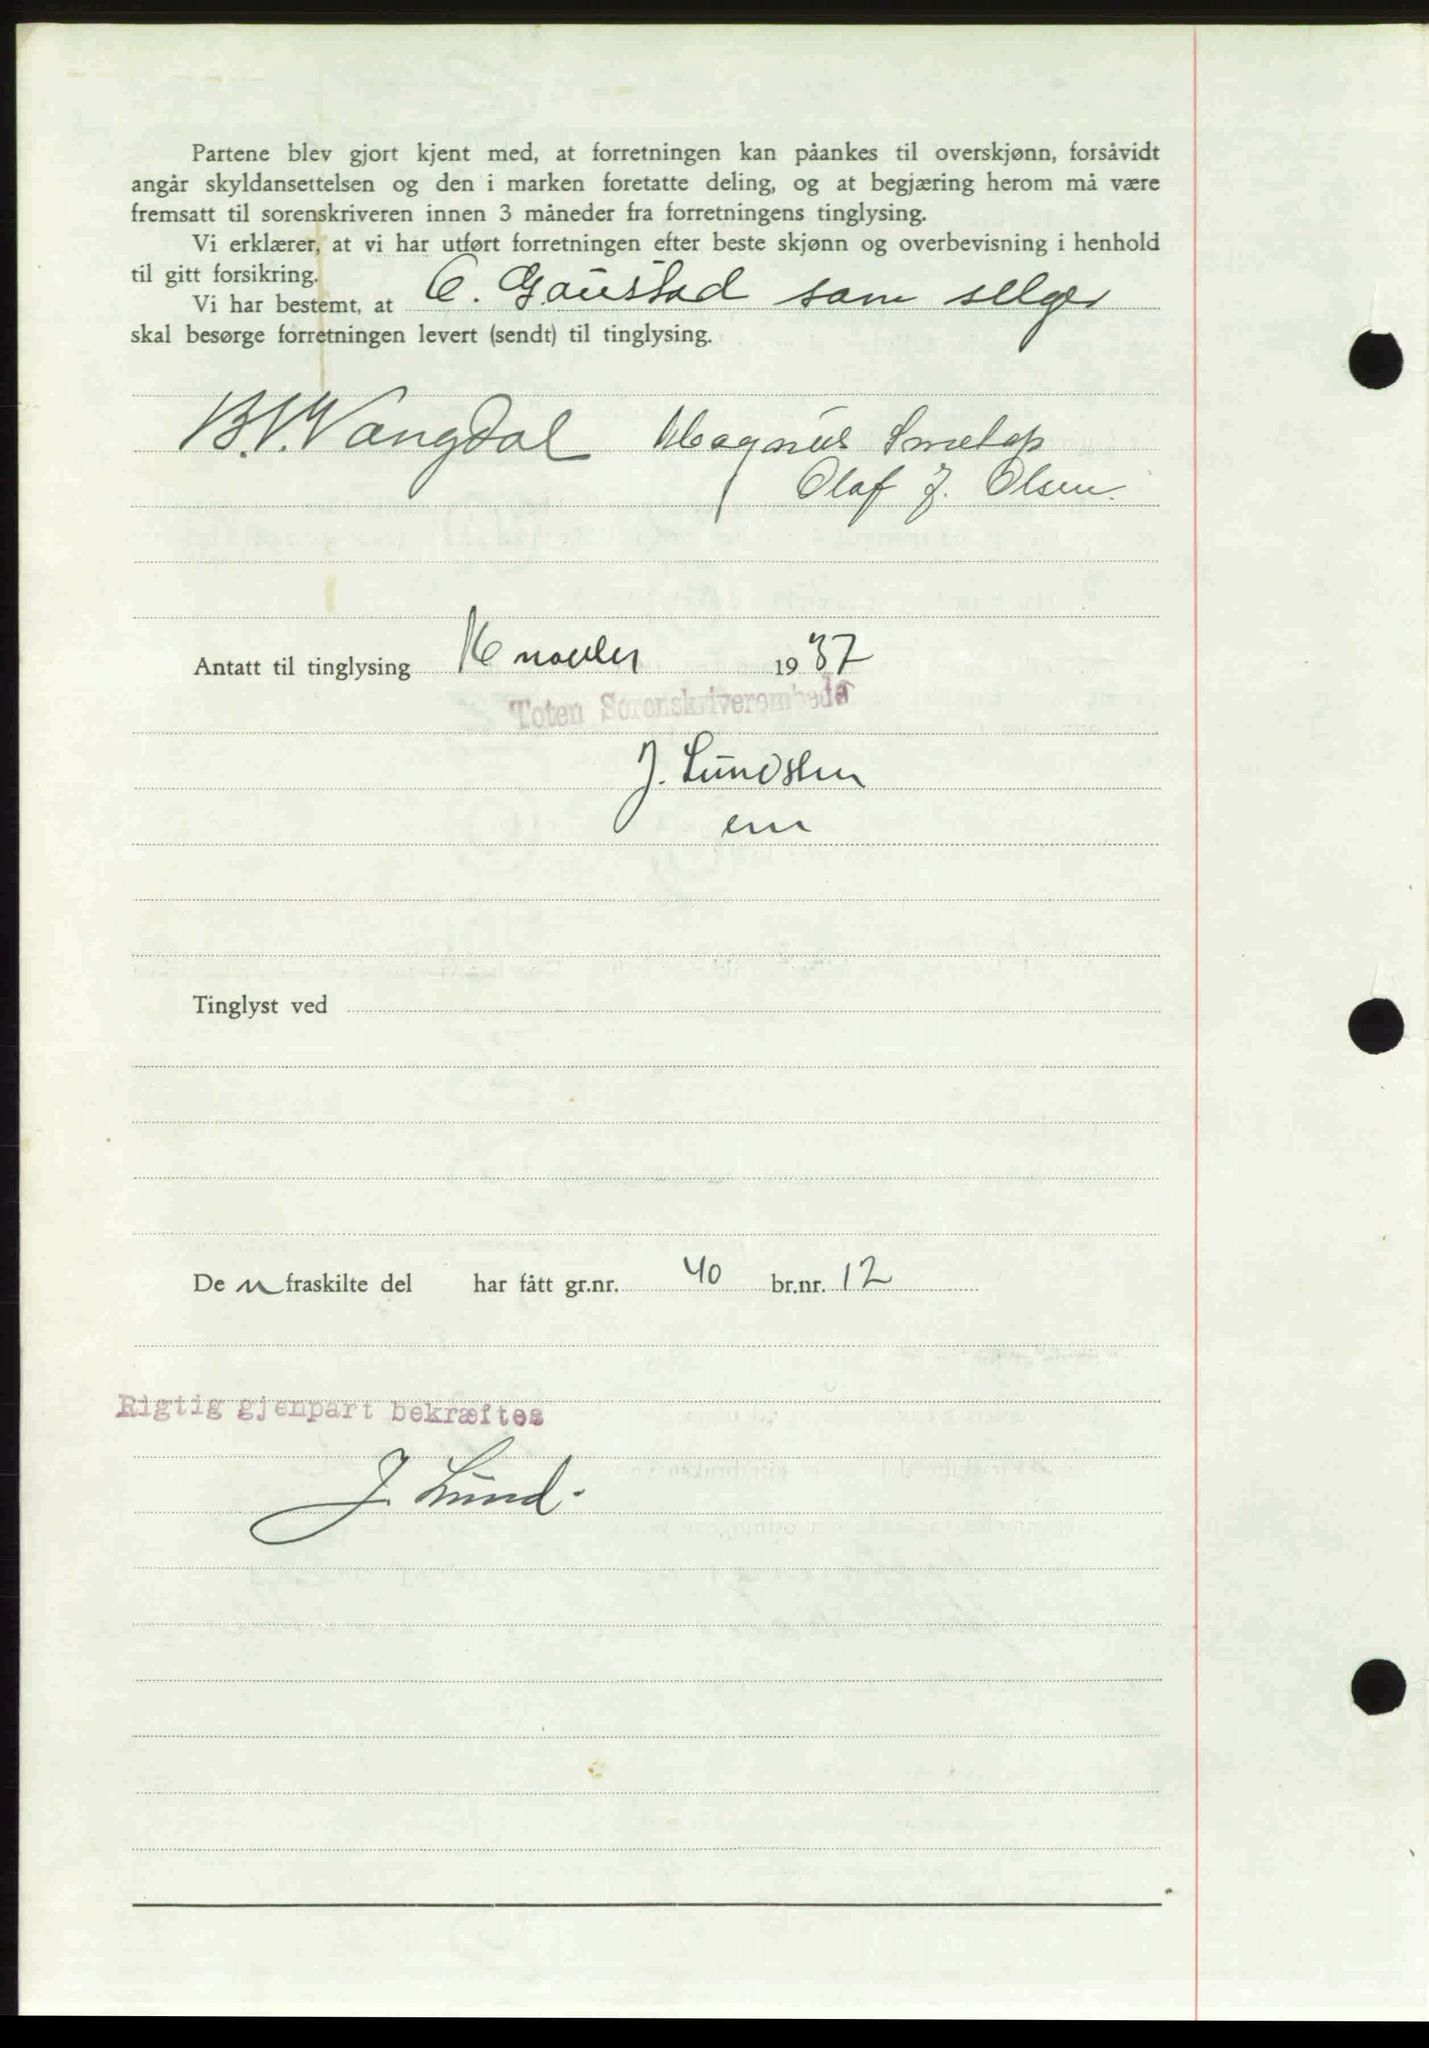 Partene blev gjort kjent med, at forretningen kan påankes til overskjønn, forsåvidt
angår skyldansettelsen og den i marken foretatte deling, og at begjæring herom må være
fremsatt til sorenskriveren innen 3 måneder fra forretningens tinglysing.
Vi erklærer, at vi har utført forretningen efter beste skjønn og overbevisning i henhold
til gitt forsikring.
Vi har bestemt, at C. Gaustad som selger
skal besørge forretningen levert (sendt) til tinglysing.
B. Vangdal Magnus
Olaf J. Olsen.
Antatt til tinglysing 16 novbr 1937
Toten Sorenskriverembede
J. Lundsten
em
Tinglyst ved
De n fraskilte del har fått gr.nr. 40 br.nr. 12
Rigtig gjenpart bekræftes
J. Lund.